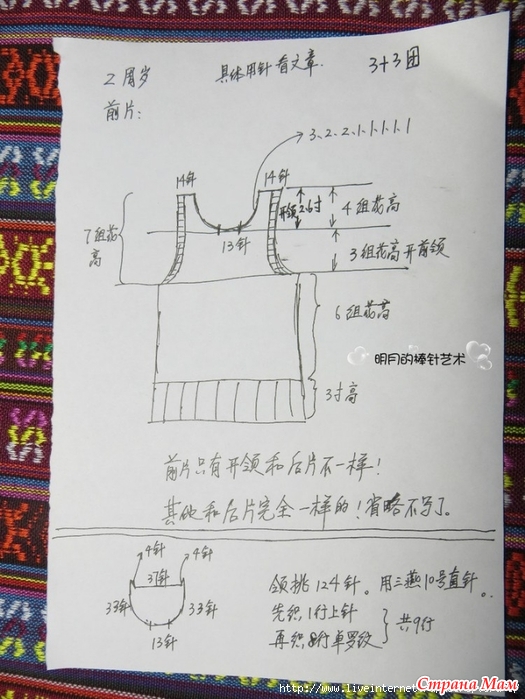 2周岁 具体用针看文章. 3+3团
前片:
3、2、2、1、1、1、1、1
14针 14针
开领2.6寸 4组花高
7组花高
13针
3组花高开前领
6组花高
明月的棒针艺术
3寸高
前片只有开领和后片不一样!
其他和后片完全一样的!省略不写了。
4针 4针
37针
33针 33针
13针
领挑124针。用三燕10号直针。
先织1行上针
再织8行单罗纹
共9行
Страна Мам
http://www.liveinternet.ru